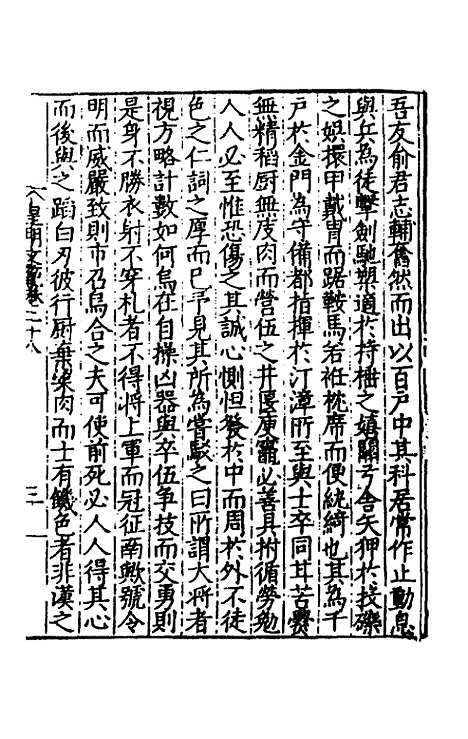 吾友俞君志輔儁然而出以百戶中其科居常作止動息
與兵為徒擊劍馳槊適於持槠之娛關弓舍矢狎於投礫
之娛擐甲戴冑而踞鞍馬若衽枕席而便紈綺也其為千
戶於金門為守備都指揮於汀漳所至與士卒同其苦爨
無精稻厨無皮肉而營伍之井匽庾竈必善具拊循勞勉
人人必至惟恐傷之其誠心惻怛發於中而周於外不徒
色之仁詞之厚而已予見其所為嘗駭之曰所謂大將者
視方略計數如何烏在自操凶器與卒伍爭技而交勇則
是身不勝衣射不穿札者不得將上軍而冠征南歟號令
明而威嚴致則市召烏合之夫可使前死必人人得其心
而後與之蹈白刃彼行厨棄粱肉而士有饑色者非漢之
皇明文 卷二十八
三